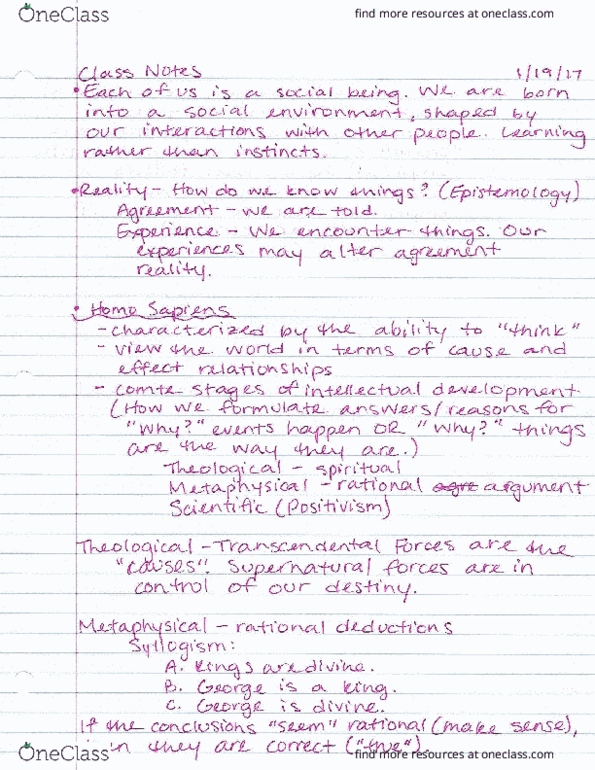 OneClass
find more resources at oneclass.com
Class Notes 1/19/17
• Each of us is a social being. We are born
into a social environment, shaped by
our interactions with other people. Learning
rather than instincts.
• Reality - How do we know things? (Epistemology)
Agreement - we are told.
Experience - We encounter things. Our
experiences may alter agreement
reality.
• Homo Sapiens
- characterized by the ability to "think"
- view the world in terms of cause and
effect relationships
- comte stages of intellectual development
(How we formulate answers/reasons for
"why?" events happen OR "why?" things
are the way they are.)
Theological - spiritual
Metaphysical - rational argument
Scientific (Positivism)
Theological - Transcendental Forces are the
"causes". Supernatural forces are in
control of our destiny.
Metaphysical - rational deductions
Syllogism:
A. Kings are divine.
B. George is a king.
C. George is divine.
If the conclusions "seem" rational (make sense),
they are correct ("true").
OneClass
find more resources at oneclass.com